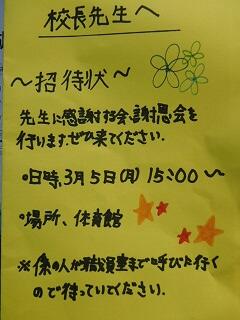 校長先生へ
～招待状～
先生に感謝する会、謝恩会を
行います。ぜひ来てください。
•日時、3月5日(月) 15:00～
•場所、体育館
※係の人が職員室まで呼びに行く
ので待っていてください。